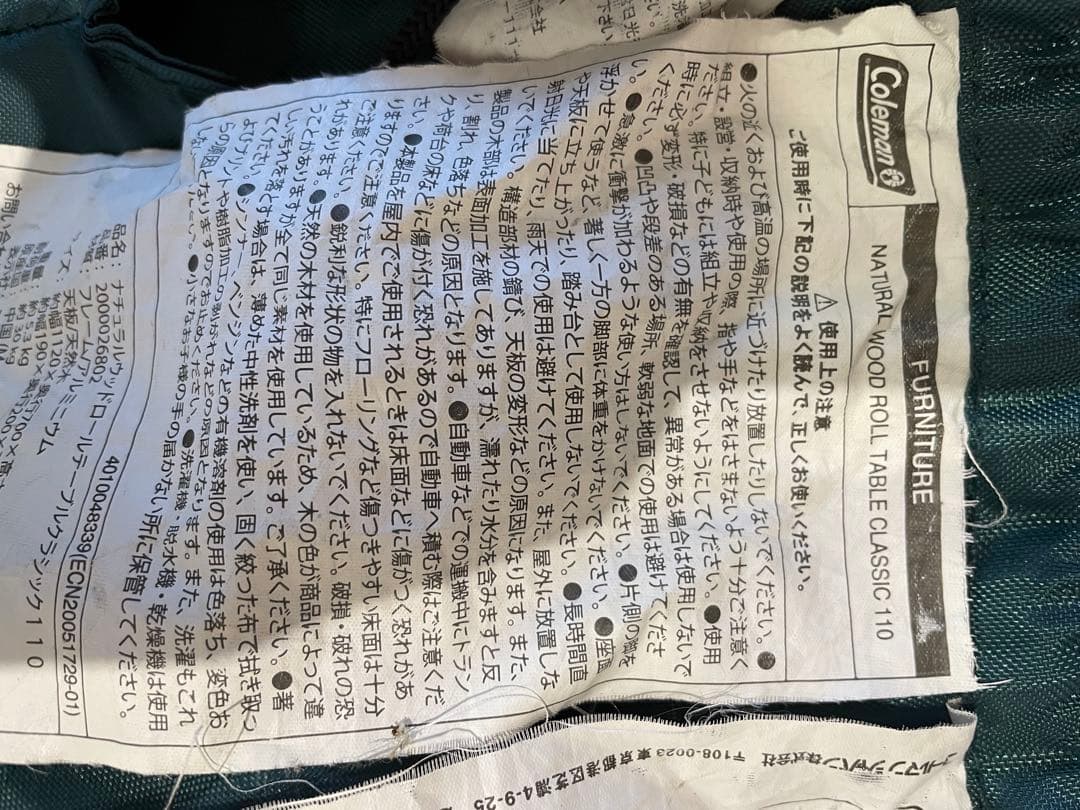 Coleman
FURNITURE
NATURAL WOOD ROLL TABLE CLASSIC 110
⚠ 使用上の注意
ご使用時に下記の説明をよく読んで、正しくお使いください。
●火の近くおよび高温の場所に近づけたり放置したりしないでください。●
組立・設営・収納時や使用の際、指や手などをはさまないよう十分ご注意く
ださい。特に子どもには組立や収納をさせないようにしてください。●使用
時に必ず変形・破損などの有無を確認して、異常がある場合は使用しないで
ください。●凹凸や段差のある場所、軟弱な地面での使用は避けてくださ
い。●急激に衝撃が加わるような使い方はしないでください。●片側の脚を
浮かせて使うなど、著しく一方の脚部に体重をかけないでください。●座面
や天板に立ち上がったり、踏み台として使用しないでください。●長時間直
射日光に当てたり、雨天での使用は避けてください。また、屋外に放置しな
いでください。構造部材の錆び、天板の変形などの原因になります。また、
製品の木部は表面加工を施してありますが、濡れたり水分を含みますと反
り、割れ、色落ちなどの原因となります。●自動車などでの運搬中にトラン
クや荷台の床などに傷が付く恐れがあるので自動車へ積む際はご注意くだ
さい。●本製品を屋内でご使用されるときは床面などに傷がつく恐れがあ
りますのでご注意ください。特にフローリングなど傷つきやすい床面は十分
ご注意ください。●鋭利な形状の物を入れないでください。破損・破れの恐
れがあります。●天然の木材を使用しているため、木の色が商品によって違
うことがありますが全て同じ素材を使用しています。ご了承ください。●著
しい汚れを落とす場合は、薄めた中性洗剤を使い、固く絞った布で拭き取っ
てください。●シンナー、ベンジンなどの有機溶剤の使用は色落ち、変色お
よびプリントや樹脂加工の剥がれなどの原因となります。また、洗濯もこれ
らの原因となりますのでお止めください。●洗濯機・脱水機・乾燥機は使用
しないでください。●小さなお子様の手の届かない所に保管してください。
4010048939(ECN20051729-01)
品名：ナチュラルウッドロールテーブルクラシック110
品番：2000026802
フレーム/アルミニウム
天板/天然木
約幅1120×
約幅190×奥行200×高
約5.3kg
kg
中国
お問い合
コールマンジャパン株式会社
〒108-0023 東京都港区芝浦4-9-25